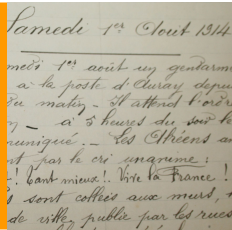 Samedi 1er Août 1914
medi 1er août un gendarme
a la poste d'Auray depui
du matin - Il attend l'ordre
à 5 heures du soir l
muniqué. - Les
nt par le cri unanime :
! Tant mieux! Vive la France !
s sont collées aux murs,
de ville, publie par les rues